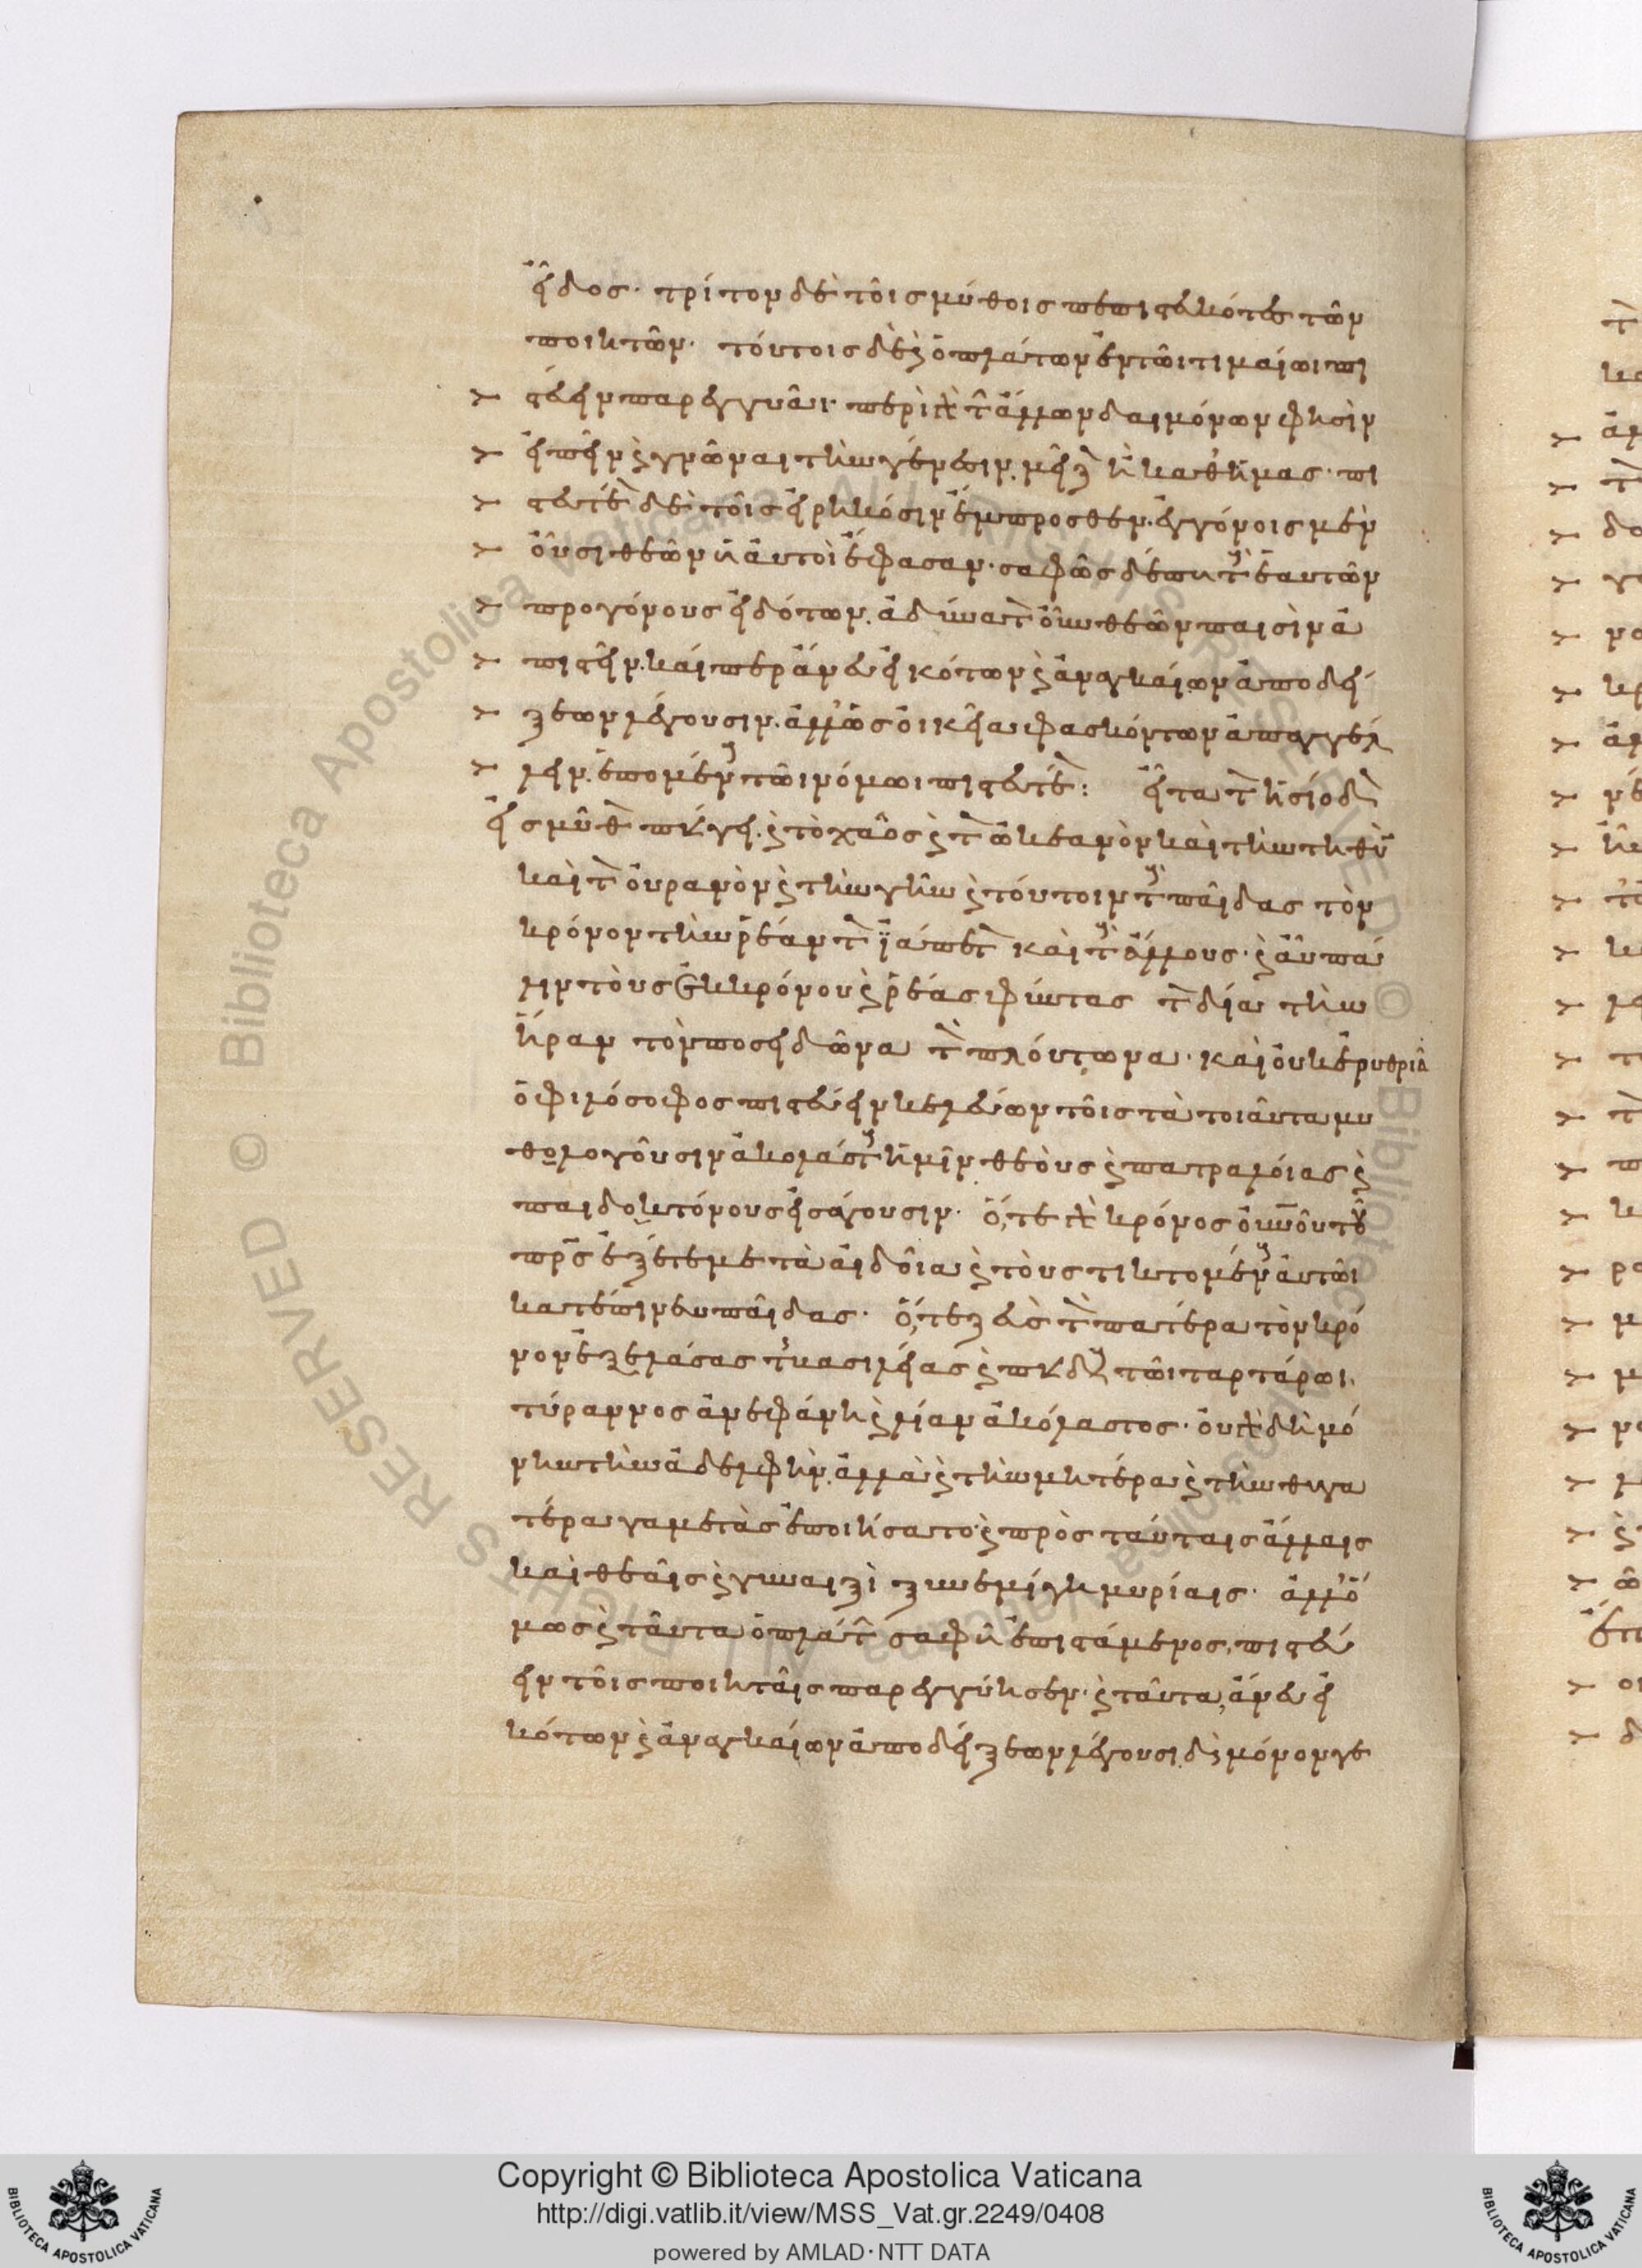 εἶδος· τρίτον δὲ τοῖς μύθοις πεπιστευκότες τῶν
ποιητῶν· τούτοις δὲ καὶ ὁ πλάτων ἐν τῶι τιμαίωι πι
στεύειν παρεγγυᾶι· περὶ γὰρ τῶν ἄλλων δαιμόνων φησὶν
εἰπεῖν καὶ γνῶναι τὴν γένεσιν, μεῖζον ἢ καθ' ἡμᾶς· πι
στευτέον δὲ τοῖς εἰρηκόσιν ἔμπροσθεν· ἐγγόνοις μὲν
οὖσι θεῶν ἧ αὐτοὶ ἔφασαν· σαφῶς δέ πη τοὺς ἑαυτῶν
προγόνους εἰδότων· ἀδύνατον οὖν θεῶν παισὶν ἀ
πιστεῖν, καίπερ ἄνευ εἰκότων καὶ ἀναγκαίων ἀποδεί
ξεων λέγουσιν· ἀλλ' ὡς οἰκεῖα φασκόντων ἀπαγγέλ
λειν, ἑπομένους τῶι νόμωι πιστευτέον: εἶτα τὸν ἡσιόδου
εἰς μῦθον παράγει, καὶ τὸ χάος καὶ τὸν ὠκεανὸν καὶ τὴν τηθὺν
καὶ τὸν οὐρανὸν καὶ τὴν γῆν καὶ τούτοιν τοὺς παῖδας τὸν
κρόνον τὴν ῥέαν τὸν ἰαπετὸν καὶ τοὺς ἄλλους· καὶ αὖ πά
λιν τοὺς ἐκ κρόνου καὶ ῥέας φύντας τὸν δία τὴν
ἥραν τὸν ποσειδῶνα τὸν πλούτωνα· καὶ οὐκ ἐρυθριᾶ
ὁ φιλόσοφος πιστεύειν κελεύων τοῖς τὰ τοιαῦτα μυ
θολογοῦσιν ἀκολάστους ἡμῖν θεοὺς καὶ πατραλοίας καὶ
παιδοκτόνους εἰσάγουσιν· ὅ, τε γὰρ κρόνος οὑτοσὶ τοῦ
πατρὸς ἐξέτεμε τὰ αἰδοῖα καὶ τοὺς τικτομένους αὐτῶι
κατέπινεν παῖδας· ὅ, τε ζεὺς τὸν πατέρα τὸν κρό
νον ἐξελάσας τῆς βασιλείας καὶ παραδοὺς τῶι ταρτάρωι,
τύραννος ἀνεφάνη καὶ λίαν ἀκόλαστος· οὐ γὰρ δὴ μό
νην τὴν ἀδελφὴν, ἀλλὰ καὶ τὴν μητέρα καὶ τὴν θυγα
τέρα γαμετὰς ἐποιήσατο· καὶ πρὸς ταύταις ἄλλαις
καὶ θεαῖς καὶ γυναιξὶ ξυνεμίγη μυρίαις· ἀλλ' ὅ
μως καὶ ταῦτα ὁ πλάτων σαφῆ ἐπιστάμενος, πιστεύ
ειν τοῖς ποιηταῖς παρεγγύησεν· καὶ ταῦτα, ἄνευ εἰ
κότων καὶ ἀναγκαίων ἀποδείξεων λέγουσι δὴ μόνον γε
Copyright © Biblioteca Apostolica Vaticana
http://digi.vatlib.it/view/MSS_Vat.gr.2249/0408
powered by AMLAD·NTT DATA